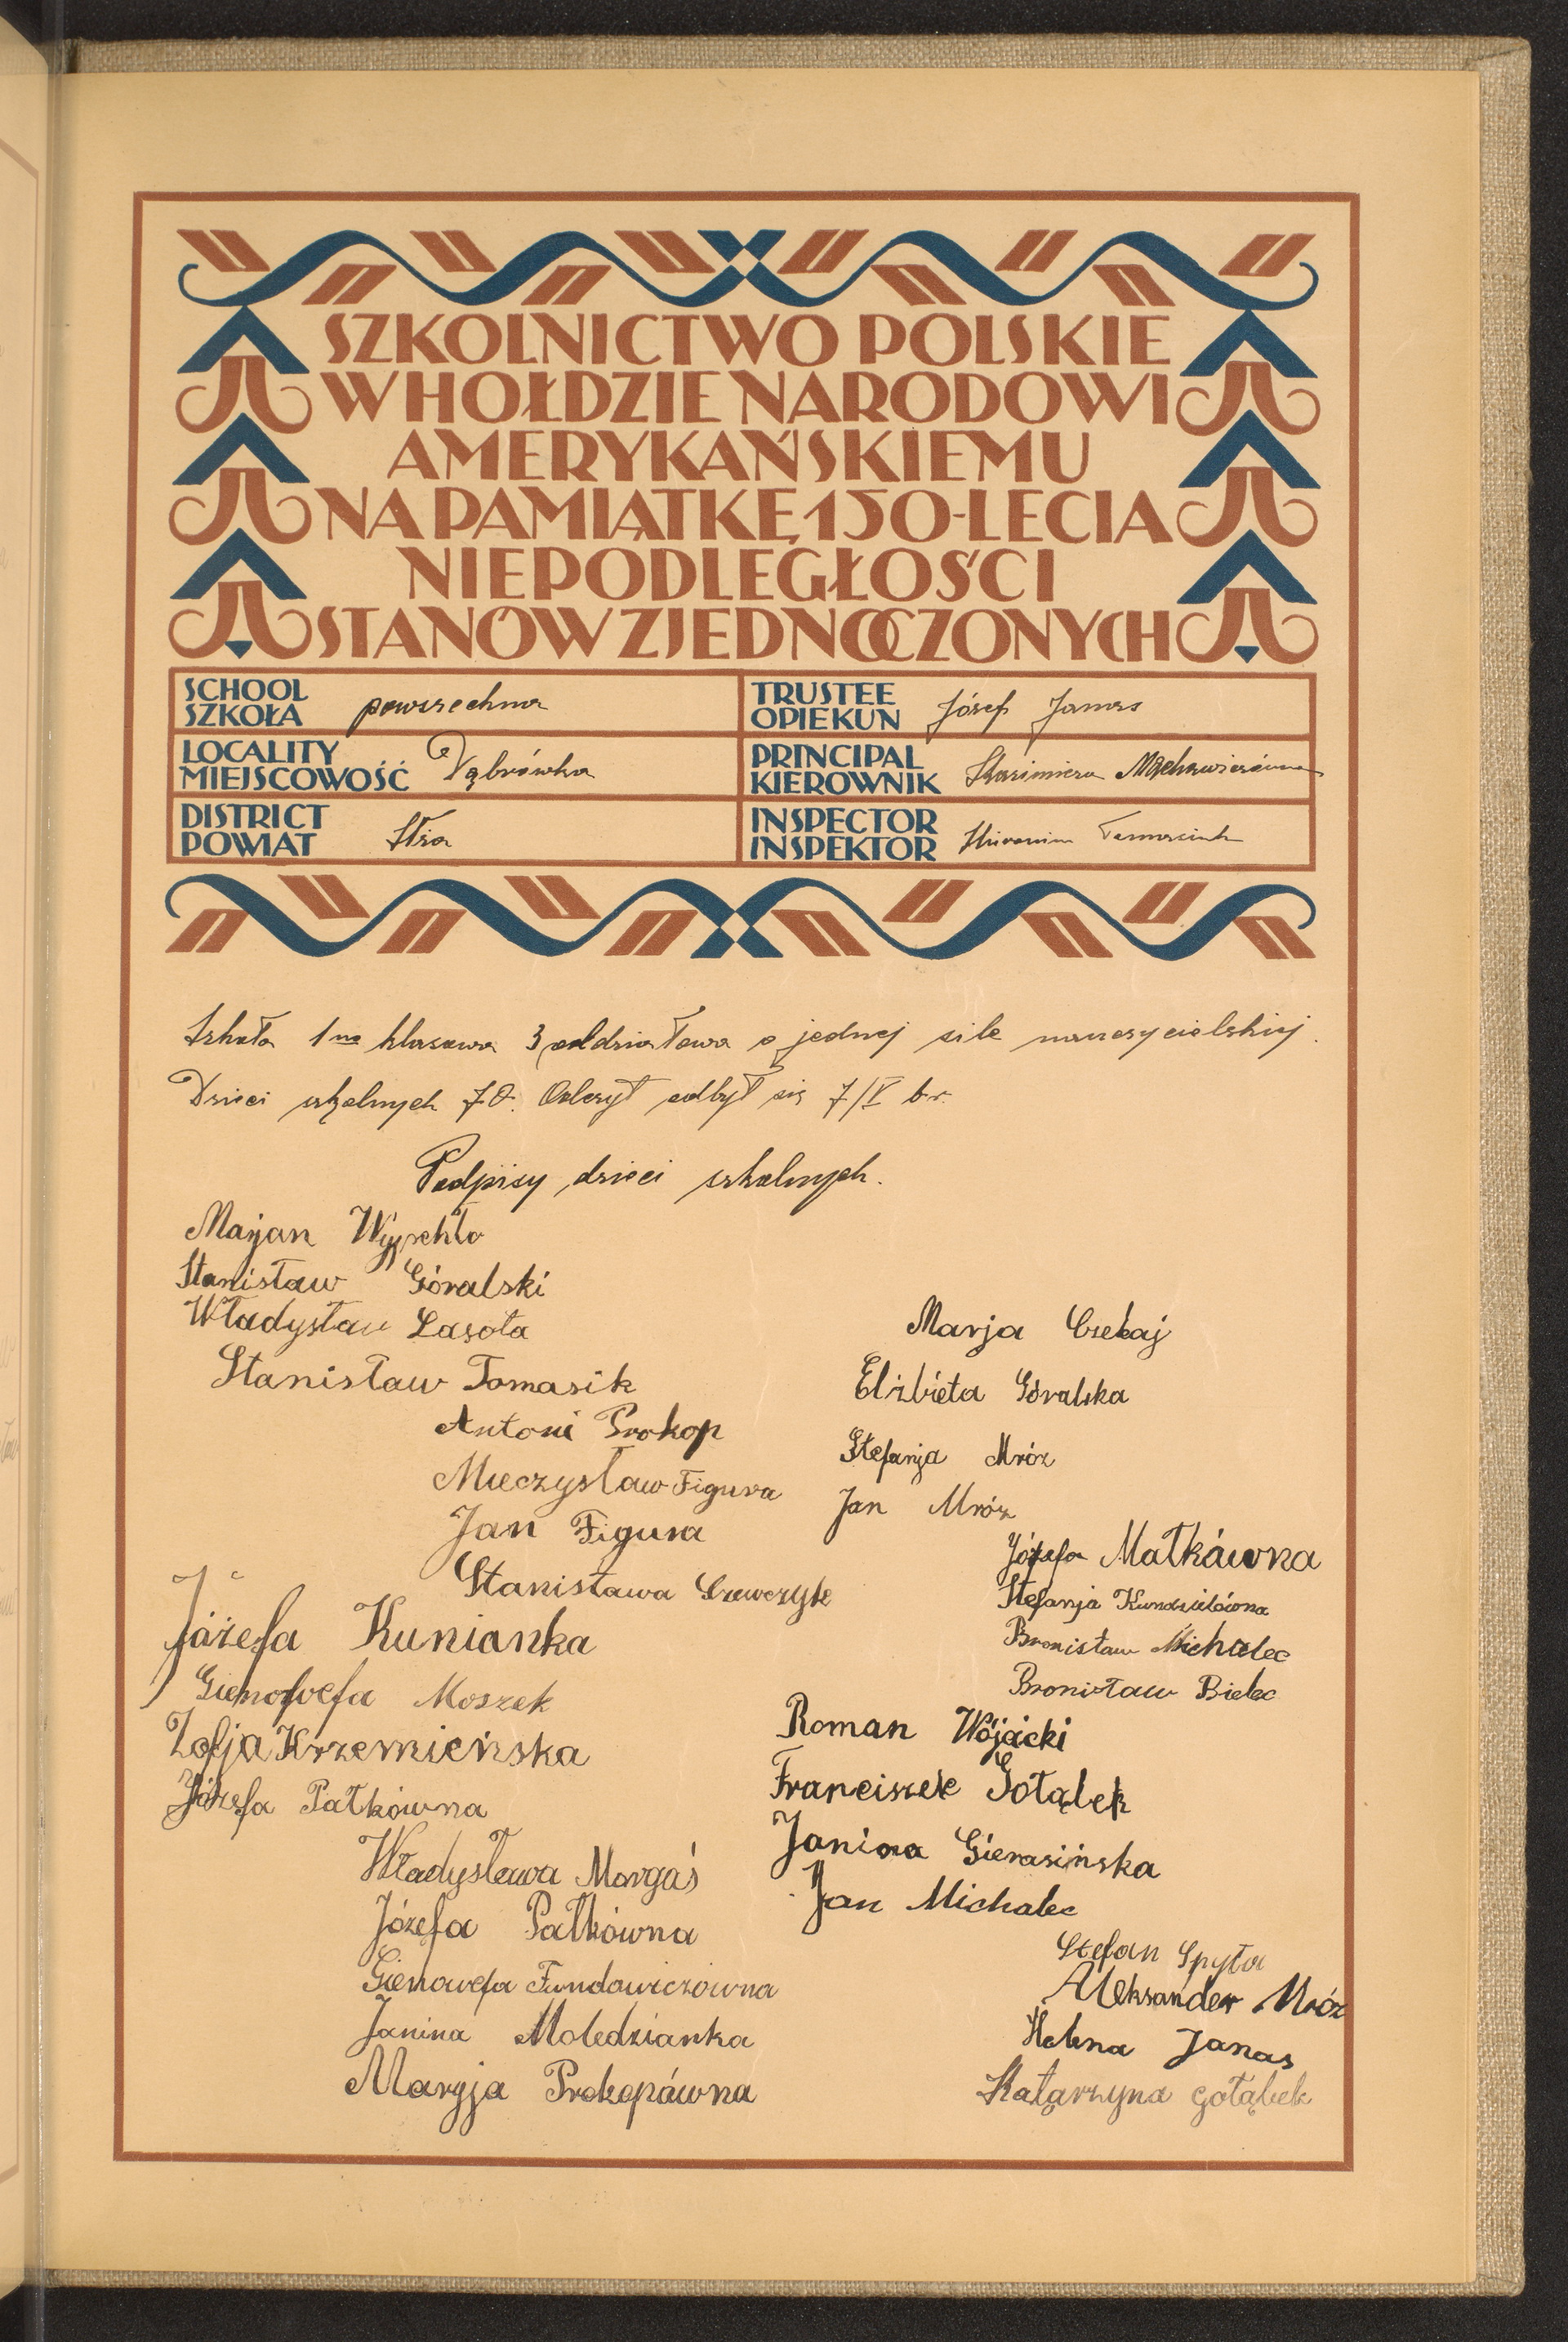 SZKOLNICTWO POLSKIE
W HOŁDZIE NARODOWI
AMERYKAŃSKIEMU
NA PAMIĄTKĘ 150-LECIA
NIEPODLEGŁOŚCI
STANÓW ZJEDNOCZONYCH
SCHOOL
SZKOŁA powszechna
TRUSTEE
OPIEKUN Józef Janas
LOCALITY
MIEJSCOWOŚĆ Dąbrówka
PRINCIPAL
KIEROWNIK Kazimiera
DISTRICT
POWIAT Iłża
INSPECTOR
INSPEKTOR Hieronim
Szkoła 1no klasowa 3 oddziałowa o jednej sile nauczycielskiej.
Dzieci szkolnych 70. Odczyt odbył się 7/V b.r.
Podpisy dzieci szkolnych.
Marjan
Stanisław Góralski
Władysław Lasota
Stanisław Tomasik
Antoni Prokop
Mieczysław Figura
Jan Figura
Stanisława Szewczyk
Józefa Kunianka
Gienofwefa Moszek
Zofja Krzemieńska
Józefa Pałkówna
Władysława Margaś
Józefa Pałkówna
Gienowefa Fundowiczówna
Janina Moledzianka
Maryja Prokopówna
Marja Czekaj
Elżbieta Góralska
Stefanja Mróz
Jan Mróz
Józefa Małkówna
Stefanja Kundzielówna
Bronisław Michalec
Bronisław Bielec
Roman Wójcicki
Franciszek Gołąbek
Janina Gierasińska
Jan Michalec
Stefan Spyta
Aleksander Mróz
Helena Janas
Katarzyna Gołąbek